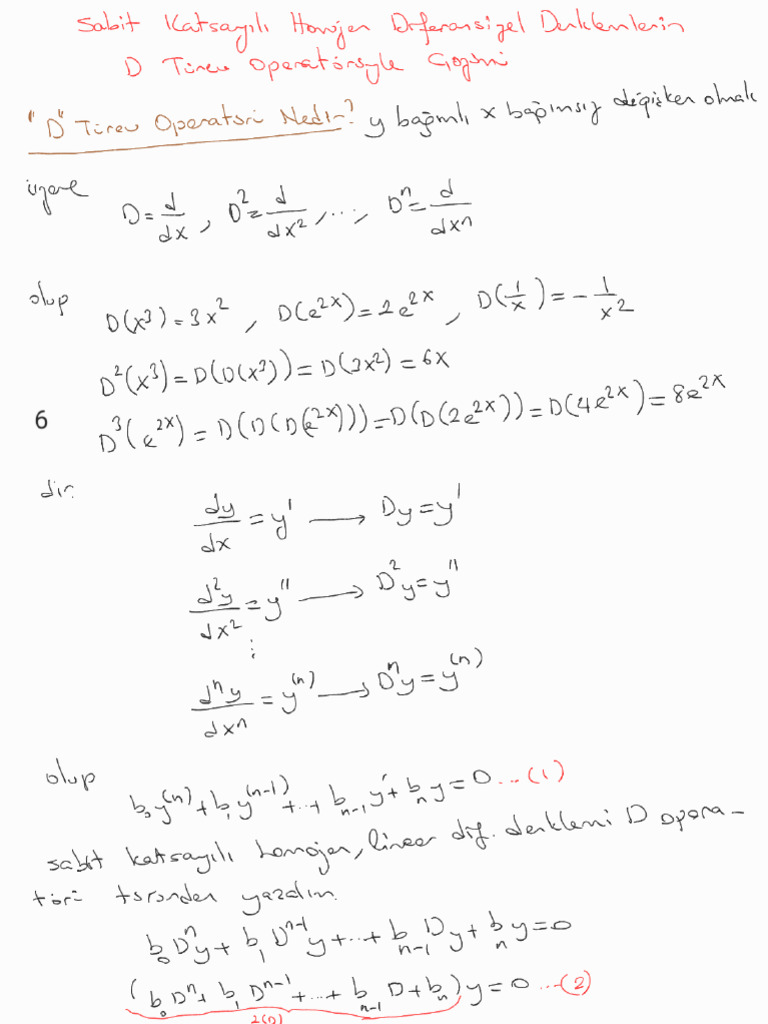 Sabit Katsayılı Homojen Diferansiyel Denklemlerin
D Türev Operatörüyle Çözümü
"D" Türev Operatörü Nedir? y bağımlı x bağımsız değişken olmak
üzere
D = d/dx , D² = d/dx² , ..., Dⁿ = d/dxⁿ
olup
D(x³) = 3x² , D(e^{2x}) = 2e^{2x} , D(1/x) = -1/x²
D²(x³) = D(D(x³)) = D(3x²) = 6x
6
D³(e^{2x}) = D(D(D(e^{2x}))) = D(D(2e^{2x})) = D(4e^{2x}) = 8e^{2x}
dir.
dy/dx = y' → Dy = y'
d²y/dx² = y'' → D²y = y''
⋮
dⁿy/dxⁿ = y⁽ⁿ⁾ → Dⁿy = y⁽ⁿ⁾
olup
b₀y⁽ⁿ⁾ + b₁y⁽ⁿ⁻¹⁾ + ... + bₙ₋₁y' + bₙy = 0 ...(1)
sabit katsayılı homojen, lineer dif. denklemi D opera-
törü
yazalım.
b₀Dⁿy + b₁Dⁿ⁻¹y + ... + bₙ₋₁Dy + bₙy = 0
(b₀Dⁿ + b₁Dⁿ⁻¹ + ... + bₙ₋₁D + bₙ)y = 0 ...(2)